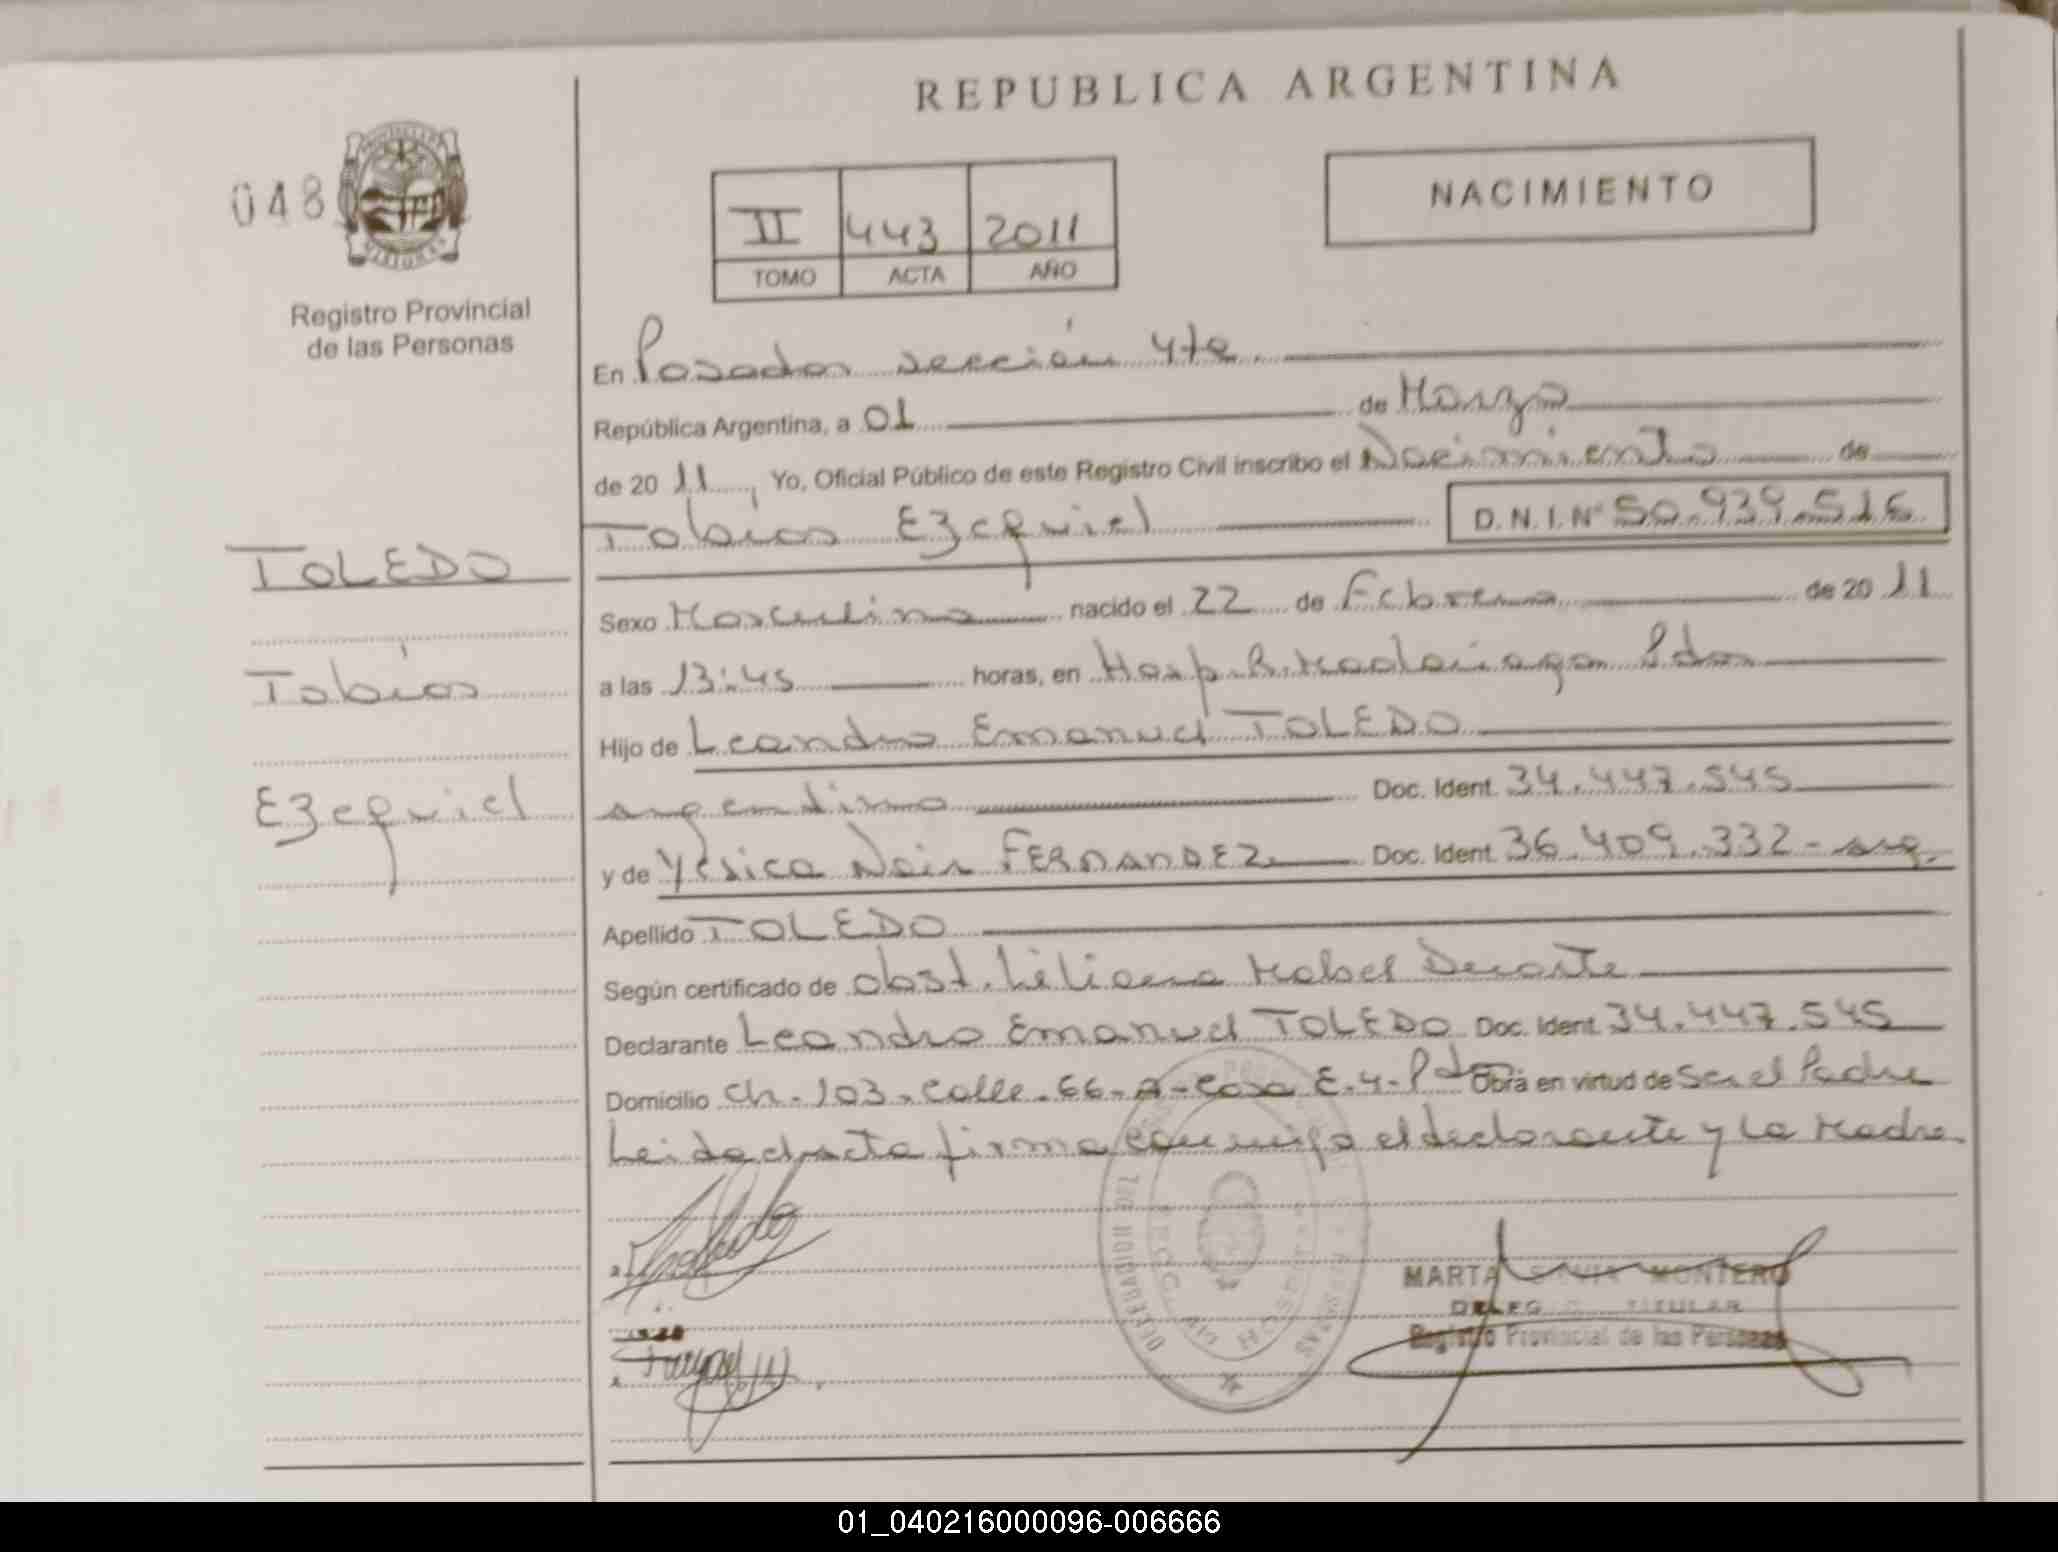 REPUBLICA ARGENTINA
048
NACIMIENTO
II 443 2011
TOMO ACTA AÑO
Registro Provincial
de las Personas
En Posadas sección 4ta
República Argentina, a 01 de Marzo
de 20 11, Yo, Oficial Público de este Registro Civil inscribo el Nacimiento de
Tobías Ezequiel D.N.I.Nº 50.939.516
TOLEDO
Tobías
Ezequiel
Sexo Masculino nacido el 22 de Febrero de 20 11
a las 13:45 horas, en Hosp. R. Madariaga Pdas
Hijo de Leandro Emanuel TOLEDO
argentino Doc. Ident. 34.447.545
y de Yesica Noir FERNANDEZ Doc. Ident. 36.409.332 - arg.
Apellido TOLEDO
Según certificado de obst. Liliana Mabel Duarte
Declarante Leandro Emanuel TOLEDO Doc. Ident. 34.447.545
Domicilio Ch. 103. Calle. 66-A-Casa E.4-Pdas Obra en virtud de Ser el Padre
Leida el acta firma conmigo el declarante y la Madre.
MARTA SILVIA MONTERO
DELEG TITULAR
Registro Provincial de las Personas
01_040216000096-006666